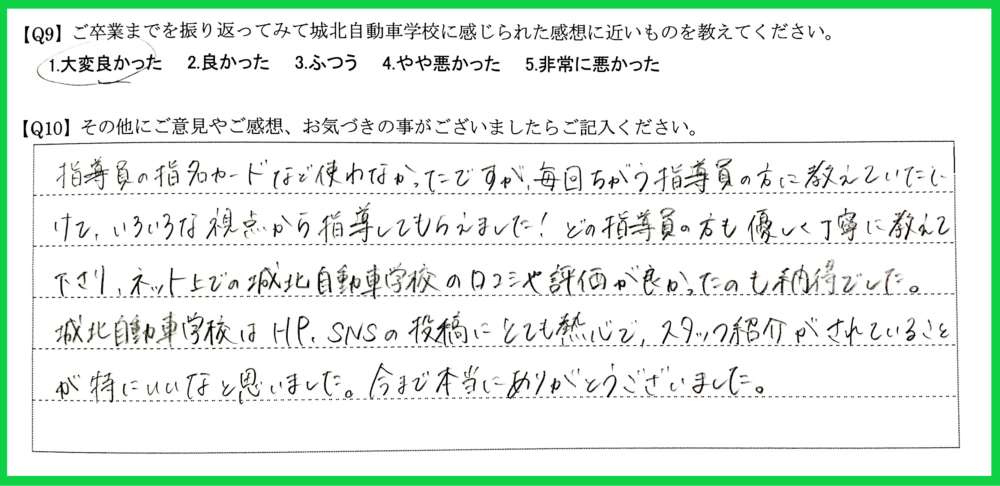 【Q9】ご卒業までを振り返ってみて城北自動車学校に感じられた感想に近いものを教えてください。
1.大変良かった 2.良かった 3.ふつう 4.やや悪かった 5.非常に悪かった
【Q10】その他にご意見やご感想、お気づきの事がございましたらご記入ください。
指導員の指名カードなど使わなかったですが、毎回ちがう指導員の方に教えていただ
けて、いろいろな視点から指導してもらえました！どの指導員の方も優しく丁寧に教えて
下さり、ネット上での城北自動車学校の口コミや評価が良かったのも納得でした。
城北自動車学校はHP、SNSの投稿にとても熱心で、スタッフ紹介がされていること
が特にいいなと思いました。今まで本当にありがとうございました。